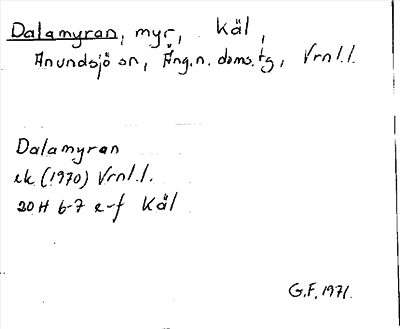 Dalamyran, myr, Käl,
Anundsjö sn, Ång.n. doms.tg, Vrnl.l.
Dalamyran
ek (1970) Vrnl.l.
20H 6-7 e-f Käl
G.F. 1971.